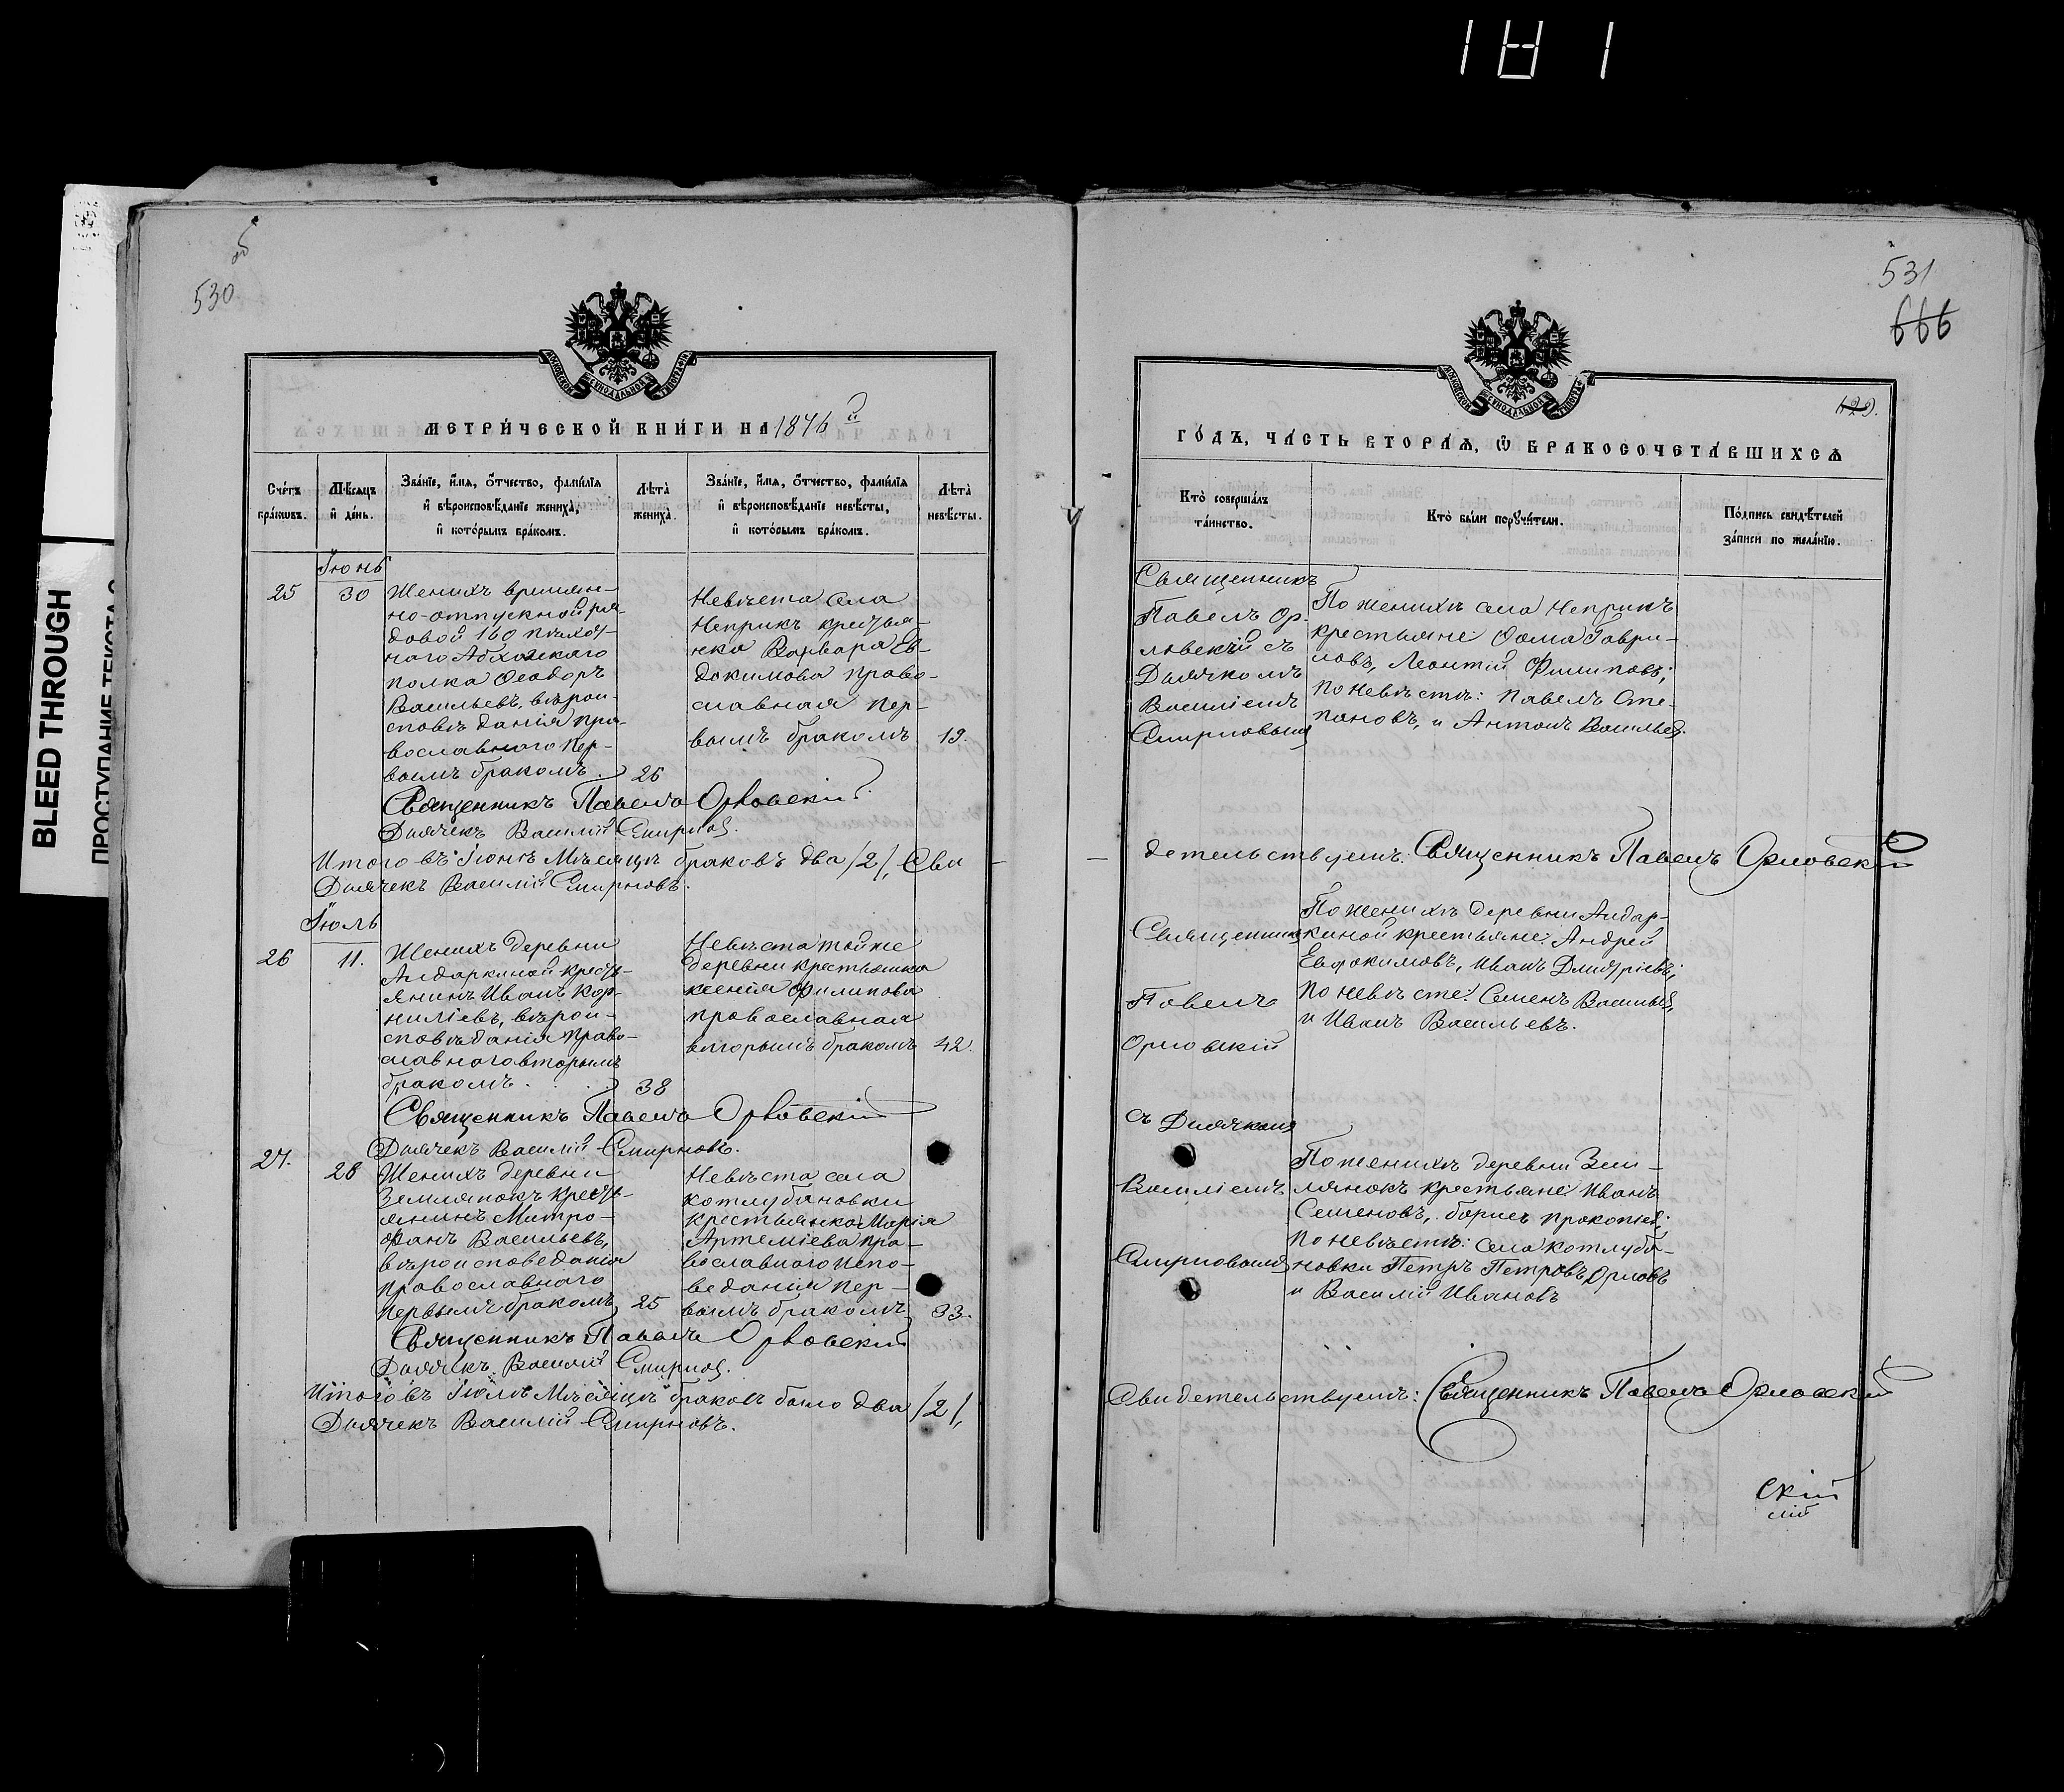 181
530
531
666
BLEED THROUGH
ПРОСТУПАНИЕ ТЕКСТА С
МОСКОВСКОЙ СѴНОДАЛЬНОЙ ТИПОГРАФІИ
МЕТРИ́ЧЕСКОЙ КНИ́ГИ НА 1876й
Сче́тъ бра́кωвъ.
Мѣ́сяцъ и҆ де́нь.
Зва́нїе, и҆́мя, ѻ҆́тчество, фами́лїя
и҆ вѣроисповѣ́данїе жениха̀,
и҆ кото́рымъ бра́комъ.
Лѣта̀ жениха̀.
Зва́нїе, и҆́мя, ѻ҆́тчество, фами́лїя
и҆ вѣроисповѣ́данїе невѣ́сты,
и҆ кото́рымъ бра́комъ.
Лѣта̀ невѣ́сты.
Іюнь
25
30
Женихъ времен-
но-отпускной ря-
довой 160 пѣхот-
наго Абхазскаго
полка Ѳеодоръ
Васильевъ, вѣрои-
сповѣданія пра-
вославнаго пер-
вымъ бракомъ.
26
Невѣста села
Неприкъ крестья-
нка Варвара Ев-
докимова право-
славная пер-
вымъ бракомъ
19.
Священникъ Павелъ Орловскій
Дьячекъ Василій Смирновъ.
Итого въ Іюнѣ Мѣсяцѣ браковъ два /2/, Сви
Дьячекъ Василій Смирновъ.
Іюль
26
11.
Женихъ деревни
Андаркиной кресть-
янинъ Иванъ Кор-
ниліевъ, вѣрои-
сповѣданія право-
славнаго вторымъ
бракомъ.
38
Невѣста тойже
деревни крестьянка
Ксенія Филипова
православная
вторымъ бракомъ
42.
Священникъ Павелъ Орловскій
Дьячекъ Василій Смирновъ.
27.
28
Женихъ деревни
Землянокъ кресть-
янинъ Митро-
фанъ Васильевъ,
вѣроисповеданія
православнаго
первымъ бракомъ,
25
Невѣста села
Котлубановки
крестьянка Марія
Артеміева пра-
вославнаго испо-
веданія пер-
вымъ бракомъ
33.
Священникъ Павелъ Орловскій
Дьячекъ Василій Смирновъ.
Итого въ Іюлѣ Мѣсяцѣ браковъ было два /2/,
Дьячекъ Василій Смирновъ.
МОСКОВСКОЙ СѴНОДАЛЬНОЙ ТИПОГРАФІИ
129.
ГО́ДЪ, ЧА́СТЬ ВТОРА́Ѧ, Ѽ БРАКОСОЧЕТА́ВШИХСѦ
Кто̀ соверша́лъ
та́инство.
Кто̀ бы́ли порꙋчи́тели.
По́дпись свидѣ́телей
за́писи по жела́нїю.
Священникъ
Павелъ Ор-
ловскій съ
Дьячкомъ
Василіемъ
Смирновымъ
По женихѣ села Неприкъ
крестьяне Ѳома Гаври-
ловъ, Леонтій Филиповъ;
по невѣстѣ: Павелъ Сте-
пановъ, и Антонъ Васильевъ.
детельствуемъ: Священникъ Павелъ Орловскій
Священникъ
Павелъ
Орловскій
съ Дьячкомъ
Василіемъ
Смирновымъ
По женихѣ деревни Андар-
киной крестьяне: Андрей
Евдокимовъ, Иванъ Дмитріевъ;
по невѣсте: Семенъ Васильевъ,
и Иванъ Васильевъ.
По женихѣ деревни Зем-
лянокъ крестьяне: Иванъ
Семеновъ, Борисъ Прокопіевъ;
по невѣстѣ: села Котлуба-
новки Петръ Петровъ Орловъ
и Василій Ивановъ
Свидетельствуемъ: Священникъ Павелъ Орловскій
скій
лій